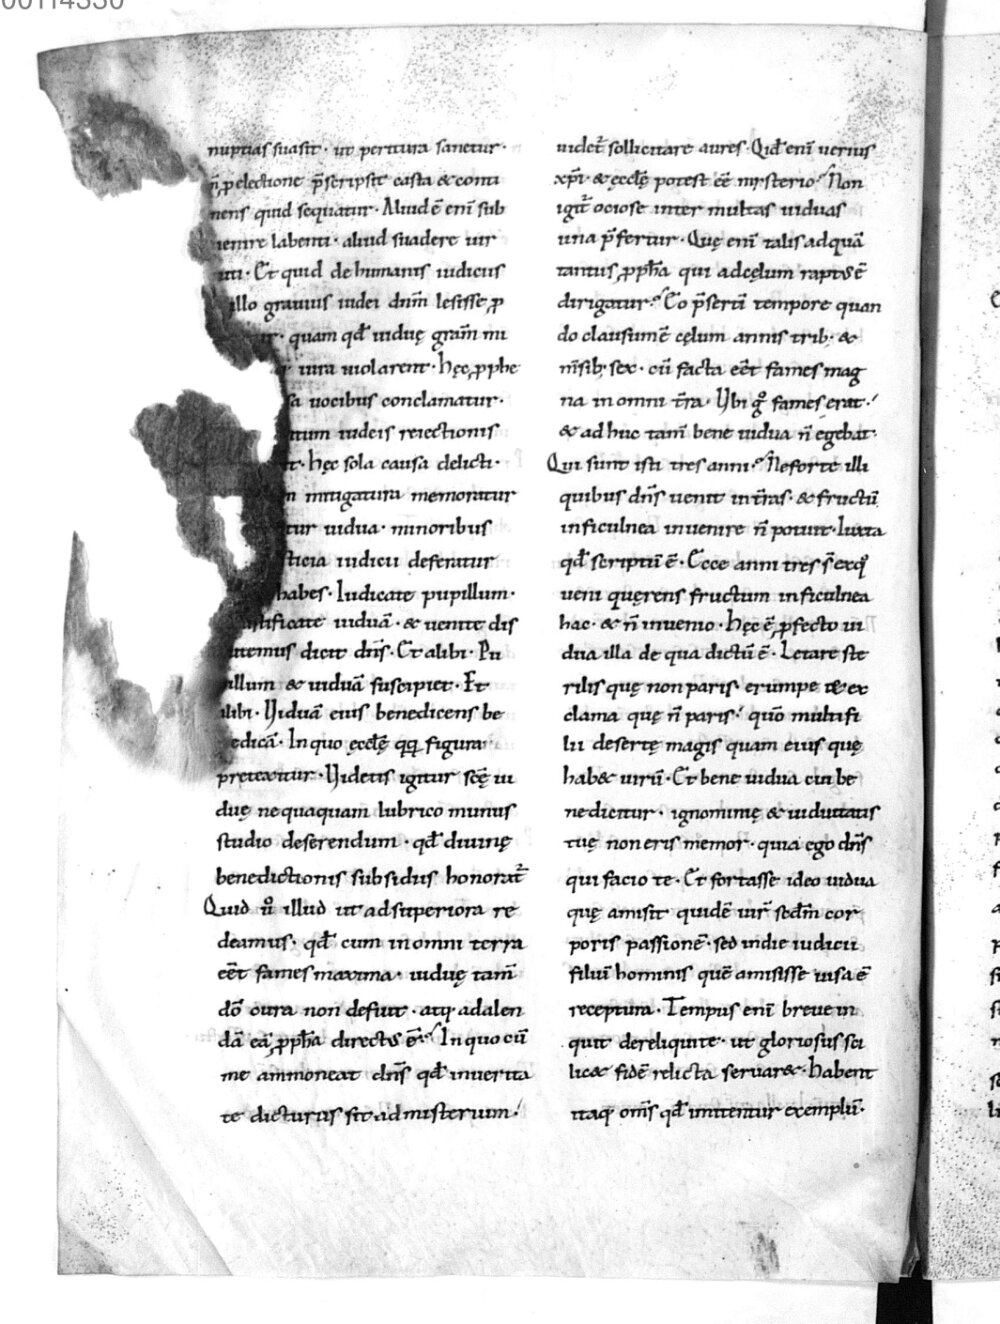 00114330
nuptias suasit · ut peritura sanetur ·
n̄ p electione p̄scripsit casta & conti
nens quid sequatur · Aliud ē eni᷑ sub
uenire labenti · aliud suadere uir
tuti · Et quid de humanis iudiciis
illo grauius iudei dnm̄ lesisse p
quam qđ uiduę gram̄ mi
iura uiolarent · hęc, ꝓphe
uocibus conclamatur ·
iudeis reiectionis
· hęc sola causa delicti ·
mitigatura memoratur
tur uidua · minoribus
ticia iudicii deferatur
habes · Iudicate pupillum ·
stificate uiduā · & uenite dis
temus dicit dn̄s · Et alibi · Pu
illum & uiduā suscipiet · Et
alibi · Uiduā eius benedicens be
edicā · In quo ęcclę̄ qq̨ figura
pretexitur · Uidetis igitur scę̄ ui
duę nequaquam lubrico munus
studio deserendum · qđ diuinę
benedictionis subsidiis honorat᷑
Quid ū illud ut ad superiora re
deamus · qđ cum in omni terra
eēt fames maxima · uiduę tam̄
dō cura non defuit · atq; ad alen
dā eā, ꝓpħa directus ē · In quo cū
me ammoneat dn̄s qđ in uerita
te dicturus sit · ad misterium ·
uidet᷑ sollicitare aures · Qiđ eni᷑ uerius
xp̄i · & ęcclę̄ potest eē mysterio? Non
igit᷑ ociose inter multas uiduas
una p̄fertur · Quę eni᷑ talis ad quā
tantus, ꝓpħa qui ad cęlum raptus ē
dirigatur? Eo p̄serti᷑ tempore quan
do clausum ē cęlum annis trib; &
m̄sib; sex · cū facta eēt fames mag
na in omni tr̄a · Ubi g° fames erat ·
& ad huc tam̄ bene uidua n̄ egebat ·
Qui sunt isti tres anni · Ne forte illi
quibus dn̄s uenit in tr̄as · & fructū
in ficulnea inuenire n̄ potuit · Iuxta
qđ scriptū ē · Ecce anni tres s̄ ex q°
ueni quęrens fructum in ficulnea
hac · & n̄ inuenio · hęc ē, ꝓfecto ui
dua illa de qua dictū ē · Letare ste
rilis quę non paris erumpe & ex
clama quę n̄ paris · quō multi fi
lii desertę magis quam eius quę
hab& uirū · Et bene uidua cui be
nedicitur · ignominię & uiduitatis
tuę non eris memor · quia ego dn̄s
qui facio te · Et fortasse ideo uidua
quę amisit quidē uir᷑ sedm̄ cor
poris passionē · sed in die iudicii
filiū hominis quē amisisse uisa ē
receptura · Tempus eni᷑ breue in
quit dereliqui te · ut gloriosius sci
lic& fidē relicta seruar& · habent
itaq; om̄s qđ imitentur exemplū ·